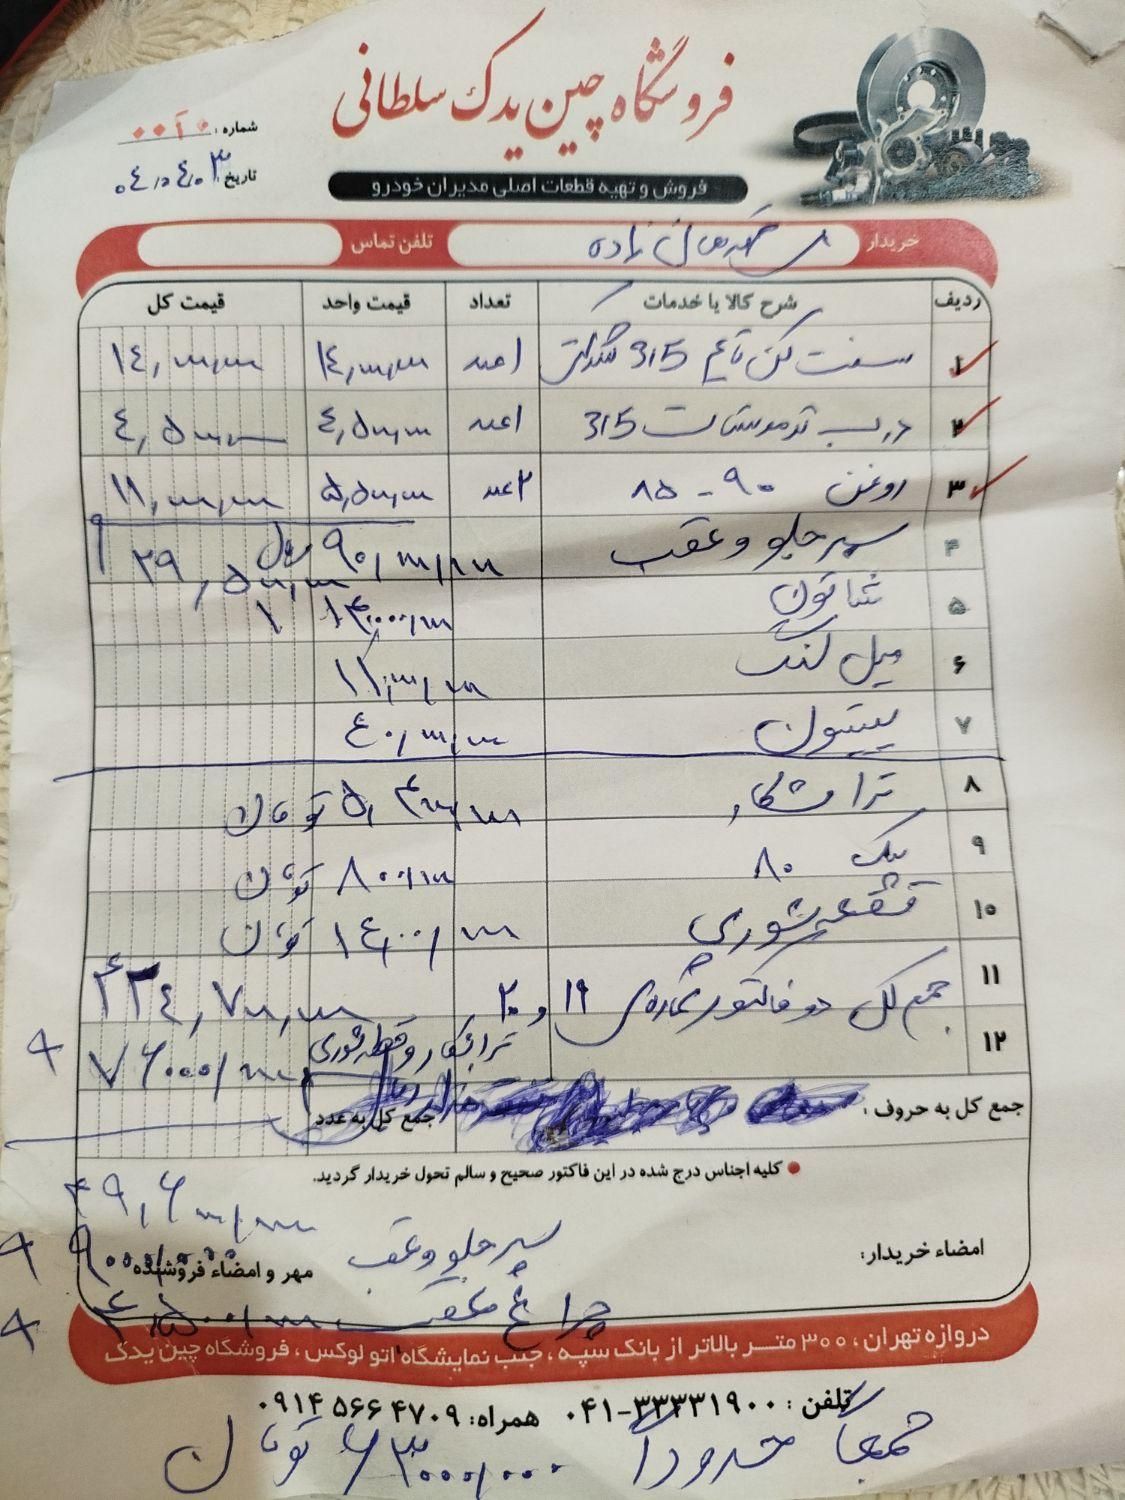 فروشگاه چین یدک سلطانی
فروش و تهیه قطعات اصلی مدیران خودرو
شماره: ۰۰۲۰
تاریخ: ۰۴،۰۴،۰۳
خریدار
تلفن تماس
ردیف شرح کالا یا خدمات تعداد قیمت واحد قیمت کل
۱ سفت کن تایم 315 ۱عدد ۱۴,۰۰۰,۰۰۰ ۱۴,۰۰۰,۰۰۰
۲ درب ترموستات 315 ۱عدد ۴,۵۰۰,۰۰۰ ۴,۵۰۰,۰۰۰
۳ روغن ۹۰-۸۵ ۲عدد ۵,۵۰۰,۰۰۰ ۱۱,۰۰۰,۰۰۰
۴ سپر جلو و عقب ۹۰,۰۰۰,۰۰۰ ریال ۲۹,۵۰۰,۰۰۰
۵ شاتون
۶ میل لنگ ۱۱,۰۰۰,۰۰۰
۷ پیستون ۴۰,۰۰۰,۰۰۰
۸ تراشکار تومان
۹ پیک ۸۰ ۸۰۰,۰۰۰ تومان
۱۰ قطعه شوری ۱,۴۰۰,۰۰۰ تومان
۱۱ جمع کل دو فاکتور شماره‌ی ۱۹ و ۲۰
۱۲ تراشکار و قطعه شوری
جمع کل به حروف:
جمع کل به عدد
کلیه اجناس درج شده در این فاکتور صحیح و سالم تحویل خریدار گردید.
سپر جلو و عقب
امضاء خریدار:
مهر و امضاء فروشنده
چراغ عقب
دروازه تهران، ۳۰۰ متر بالاتر از بانک سپه، جنب نمایشگاه اتو لوکس، فروشگاه چین یدک
تلفن: ۰۴۱-۳۳۳۳۱۹۰۰ همراه: ۰۹۱۴ ۵۶۶ ۴۷۰۹
جمعا حدودا ۶۳,۰۰۰,۰۰۰ تومان